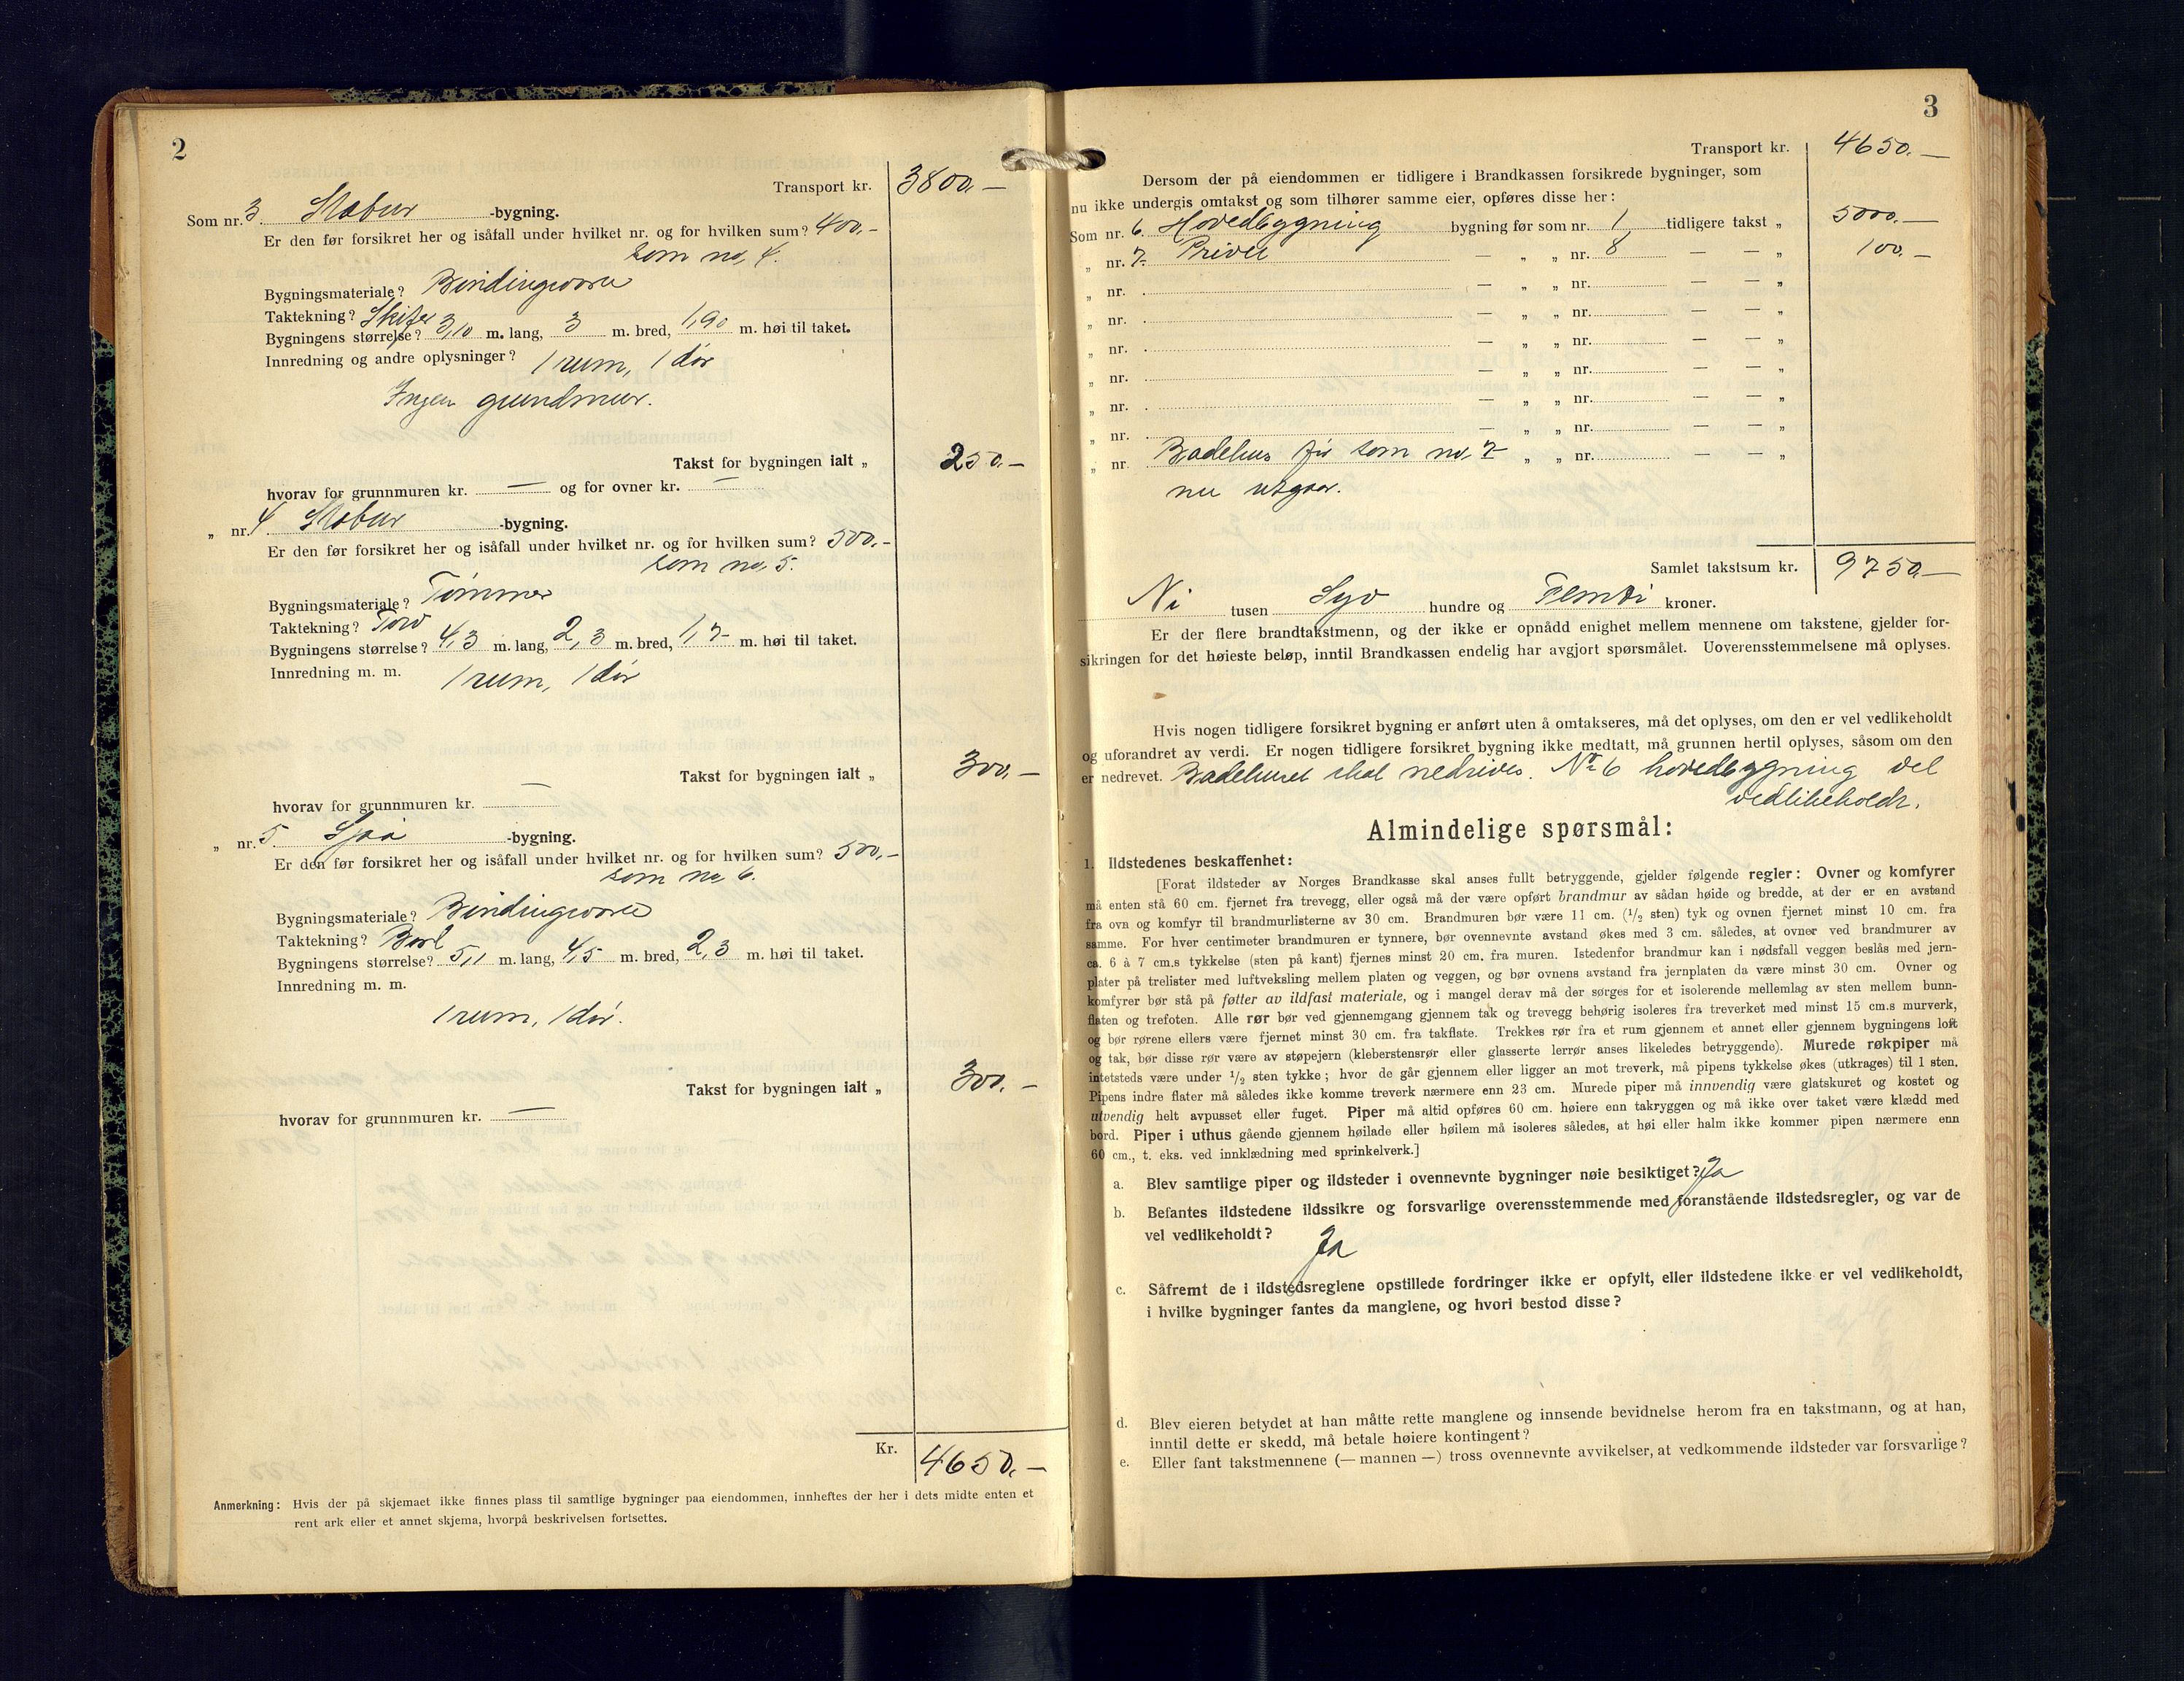 2
Transport kr. 3800,—
Som nr. 3. Stabur -bygning.
Er den før forsikret her og isåfall under hvilket nr. og for hvilken sum? 400,—
som no, 4.
Bygningsmateriale? Bindingsverk
Taktekning? Skifer
Bygningens størrelse? 3,10 m. lang, 3 m. bred, 1,90 m. høi til taket.
Innredning og andre oplysninger? 1 rum, 1 dør
Ingen grundmur.
Takst for bygningen ialt „ 250,—
hvorav for grunnmuren kr. — og for ovner kr. —
„ nr. 4 Stabur -bygning.
Er den før forsikret her og isåfall under hvilket nr. og for hvilken sum? 500,—
som no, 5.
Bygningsmateriale? Tømmer
Taktekning? Torv
Bygningens størrelse? 4,3 m. lang, 2,3 m. bred, 1,7 m. høi til taket.
Innredning m. m. 1 rum, 1 dør
Takst for bygningen ialt „ 300,—
hvorav for grunnmuren kr. —
„ nr. 5. Sjaa -bygning.
Er den før forsikret her og isåfall under hvilket nr. og for hvilken sum? 500,—
som no 6.
Bygningsmateriale? Bindingsverk
Taktekning? Bord
Bygningens størrelse? 5,1 m. lang, 4,5 m. bred, 2,3 m. høi til taket.
Innredning m. m.
1 rum, 1 dør.
Takst for bygningen ialt „ 300,—
hvorav for grunnmuren kr. —
Kr. 4650,—
Anmerkning: Hvis der på skjemaet ikke finnes plass til samtlige bygninger paa eiendommen, innheftes der her i dets midte enten et
rent ark eller et annet skjema, hvorpå beskrivelsen fortsettes.
3
Transport kr. 4650,—
Dersom der på eiendommen er tidligere i Brandkassen forsikrede bygninger, som
nu ikke undergis omtakst og som tilhører samme eier, opføres disse her:
Som nr. 6. Hovedbygning bygning før som nr. 1 tidligere takst „ 5000,—
„ nr. 7. Privet — „ „ nr. 8 — — „ 100,—
„ nr. — „ „ nr. — — „
„ nr. — „ „ nr. — — „
„ nr. — „ „ nr. — — „
„ nr. — „ „ nr. — — „
„ nr. — „ „ nr. — — „
„ nr. — „ „ nr. — — „
„ nr. Badehus før som no, 7 „ „ nr. — — „
nu utgaar.
Samlet takstsum kr. 9750,—
Ni tusen Syv hundre og Femti kroner.
Er der flere brandtakstmenn, og der ikke er opnådd enighet mellem mennene om takstene, gjelder for-
sikringen for det høieste beløp, inntil Brandkassen endelig har avgjort spørsmålet. Uoverensstemmelsene må oplyses.
Hvis nogen tidligere forsikret bygning er anført uten å omtakseres, må det oplyses, om den er vel vedlikeholdt
og uforandret av verdi. Er nogen tidligere forsikret bygning ikke medtatt, må grunnen hertil oplyses, såsom om den
er nedrevet. Badehuset skal nedrives. No 6 hovedbygning vel
vedlikeholdt.
Almindelige spørsmål:
1. Ildstedenes beskaffenhet:
[Forat ildsteder av Norges Brandkasse skal anses fullt betryggende, gjelder følgende regler: Ovner og komfyrer
må enten stå 60 cm. fjernet fra trevegg, eller også må der være opført brandmur av sådan høide og bredde, at der er en avstand
fra ovn og komfyr til brandmurlisterne av 30 cm. Brandmuren bør være 11 cm. (1/2 sten) tyk og ovnen fjernet minst 10 cm. fra
samme. For hver centimeter brandmuren er tynnere, bør ovennevnte avstand økes med 3 cm. således, at ovner ved brandmurer av
ca. 6 à 7 cm.s tykkelse (sten på kant) fjernes minst 20 cm. fra muren. Istedenfor brandmur kan i nødsfall veggen beslås med jern-
plater på trelister med luftveksling mellem platen og veggen, og bør ovnens avstand fra jernplaten da være minst 30 cm. Ovner og
komfyrer bør stå på føtter av ildfast materiale, og i mangel derav må der sørges for et isolerende mellemlag av sten mellem bunn-
flaten og trefoten. Alle rør bør ved gjennemgang gjennem tak og trevegg behørig isoleres fra treverket med minst 15 cm.s murverk,
og bør rørene ellers være fjernet minst 30 cm. fra takflate. Trekkes rør fra et rum gjennem et annet eller gjennem bygningens loft
og tak, bør disse rør være av støpejern (kleberstensrør eller glasserte lerrør anses likeledes betryggende). Murede røkpiper må
intetsteds være under 1/2 sten tykke; hvor de går gjennem eller ligger an mot treverk, må pipens tykkelse økes (utkrages) til 1 sten.
Pipens indre flater må således ikke komme treverk nærmere enn 23 cm. Murede piper må innvendig være glatskuret og kostet og
utvendig helt avpusset eller fuget. Piper må altid opføres 60 cm. høiere enn takryggen og må ikke over taket være klædd med
bord. Piper i uthus gående gjennem høilade eller høilem må isoleres således, at høi eller halm ikke kommer pipen nærmere enn
60 cm., t. eks. ved innklædning med sprinkelverk.]
a. Blev samtlige piper og ildsteder i ovennevnte bygninger nøie besiktiget? Ja
b. Befantes ildstedene ildssikre og forsvarlige overensstemmende med foranstående ildstedsregler, og var de
vel vedlikeholdt? Ja
c. Såfremt de i ildstedsreglene opstillede fordringer ikke er opfylt, eller ildstedene ikke er vel vedlikeholdt,
i hvilke bygninger fantes da manglene, og hvori bestod disse?
d. Blev eieren betydet at han måtte rette manglene og innsende bevidnelse herom fra en takstmann, og at han,
inntil dette er skedd, må betale høiere kontingent?
e. Eller fant takstmennene (— mannen —) tross ovennevnte avvikelser, at vedkommende ildsteder var forsvarlige?